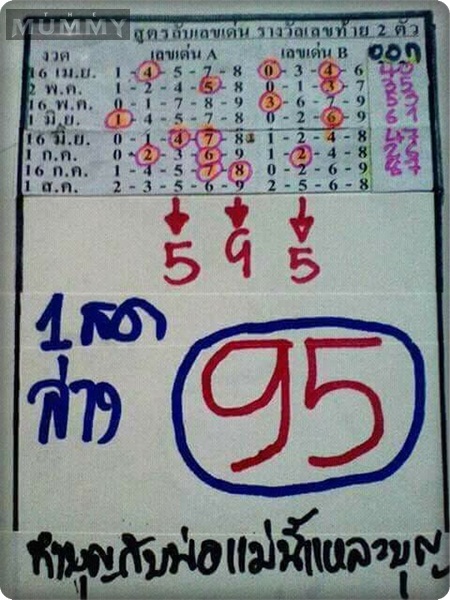 MUMMY
สูตรลับเลขเด่น รางวัลเลขท้าย 2 ตัว
งวด เลขเด่น A เลขเด่น B ออก
16 เม.ย. 1 - 4 - 5 - 7 - 8 0 - 3 - 4 - 6
2 พ.ค. 1 - 2 - 4 - 5 - 8 0 - 1 - 3 - 7
16 พ.ค. 0 - 1 - 7 - 8 - 9 3 - 6 - 7 - 9
1 มิ.ย. 1 - 4 - 4 - 5 - 8 0 - 2 - 6 - 9
16 มิ.ย. 0 - 1 - 4 - 7 - 8 1 - 2 - 4 - 8 47
1 ก.ค. 0 - 2 - 3 - 6 - 8 1 - 2 - 4 - 8 26
16 ก.ค. 0 - 4 - 5 - 7 - 8 0 - 2 - 6 - 9 87
1 ส.ค. 2 - 3 - 5 - 6 - 9 2 - 5 - 6 - 8
5 9 5
1 สอด
ล่าง
95
ทำบุญกับพ่อแม่นี้แหละบุญ